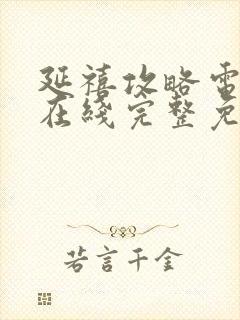 延禧攻略電
在綫完整免
若言千金